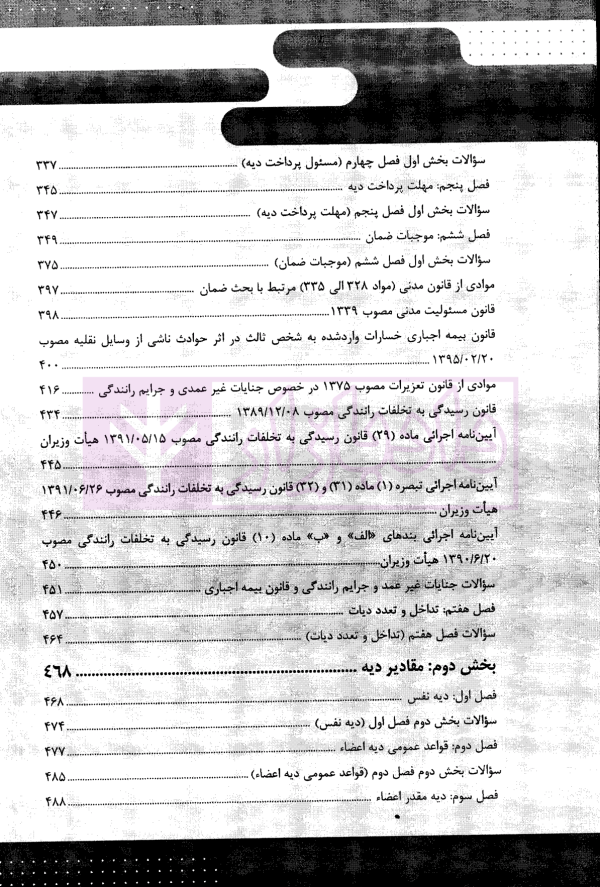 سؤالات بخش اول فصل چهارم (مسئول پرداخت دیه) ........ ۳۳۷
فصل پنجم: مهلت پرداخت دیه ........ ۳۴۵
سؤالات بخش اول فصل پنجم (مهلت پرداخت دیه) ........ ۳۴۷
فصل ششم: موجبات ضمان ........ ۳۴۹
سؤالات بخش اول فصل ششم (موجبات ضمان) ........ ۳۷۵
موادی از قانون مدنی (مواد ۳۲۸ الی ۳۳۵) مرتبط با بحث ضمان ........ ۳۹۷
قانون مسئولیت مدنی مصوب ۱۳۳۹ ........ ۳۹۸
قانون بیمه اجباری خسارات واردشده به شخص ثالث در اثر حوادث ناشی از وسایل نقلیه مصوب
۱۳۹۵/۰۲/۲۰ ........ ۴۰۰
موادی از قانون تعزیرات مصوب ۱۳۷۵ در خصوص جنایات غیر عمدی و جرایم رانندگی ........ ۴۱۶
قانون رسیدگی به تخلفات رانندگی مصوب ۱۳۸۹/۱۲/۰۸ ........ ۴۳۴
آیین‌نامه اجرائی ماده (۲۹) قانون رسیدگی به تخلفات رانندگی مصوب ۱۳۹۱/۰۵/۱۵ هیأت وزیران
........ ۴۴۵
آیین‌نامه اجرائی تبصره (۱) ماده (۳۱) و (۳۲) قانون رسیدگی به تخلفات رانندگی مصوب ۱۳۹۱/۰۶/۲۶
هیأت وزیران ........ ۴۴۶
آیین‌نامه اجرائی بندهای «الف» و «ب» ماده (۱۰) قانون رسیدگی به تخلفات رانندگی مصوب
۱۳۹۰/۶/۲۰ هیأت وزیران ........ ۴۵۰
سؤالات جنایات غیر عمد و جرایم رانندگی و قانون بیمه اجباری ........ ۴۵۱
فصل هفتم: تداخل و تعدد دیات ........ ۴۵۷
سؤالات فصل هفتم (تداخل و تعدد دیات) ........ ۴۶۴
بخش دوم: مقادیر دیه ........ ۴۶۸
فصل اول: دیه نفس ........ ۴۶۸
سؤالات بخش دوم فصل اول (دیه نفس) ........ ۴۷۴
فصل دوم: قواعد عمومی دیه اعضاء ........ ۴۷۷
سؤالات بخش دوم فصل دوم (قواعد عمومی دیه اعضاء) ........ ۴۸۵
فصل سوم: دیه مقدر اعضاء ........ ۴۸۸